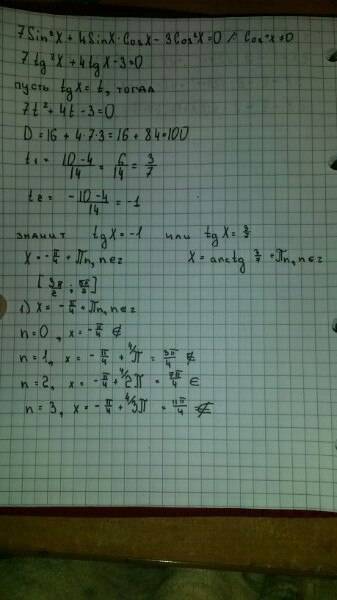 7Sin²X + 4SinX·CosX - 3Cos²X=0 /: Cos²X≠0
7tg²X + 4tgX-3=0
пусть tgX= t, тогда
7t² + 4t -3=0
D = 16 + 4·7·3=16 + 84=100
t₁ = (10-4)/14 = 6/14 = 3/7
t₂ = (-10-4)/14 = -1
значит tgX = -1 или tgX = 3/7
X = -π/4 + πn, n∈z X = arctg 3/7 + πn, n∈z
[3π/2 ; 5π/2]
1) X = -π/4 + πn, n∈z
n=0, x = -π/4 ∉
n=1, x = -π/4 + ⁴/π = 3π/4 ∉
n=2, x = -π/4 + ⁴/2π = 7π/4 ∈
n=3, x = -π/4 + ⁴/3π = 11π/4 ∉